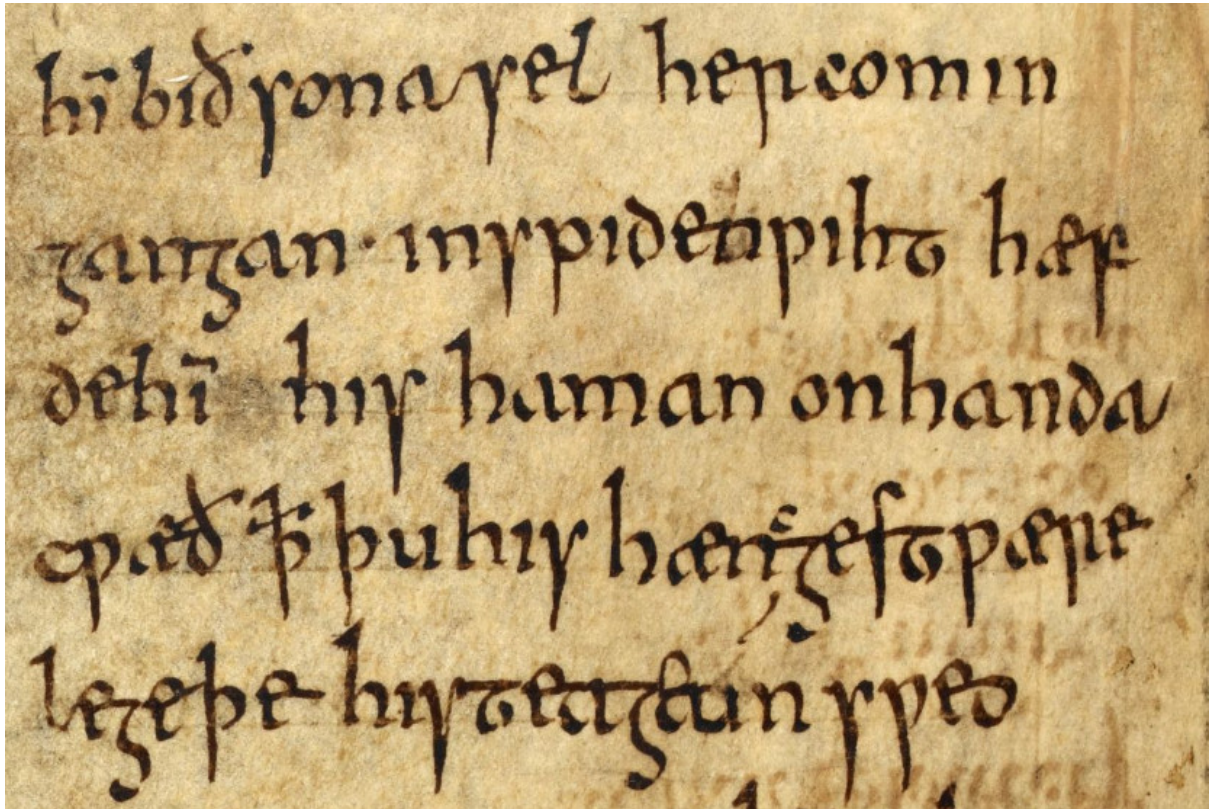 hī bið sona sel her com in
gangan · in sƿiden ƿiht hæf
de hī his haman on handa
cƿæð ꝥ þu his hæncgest ƿære
lege þe his teage an sƿeo